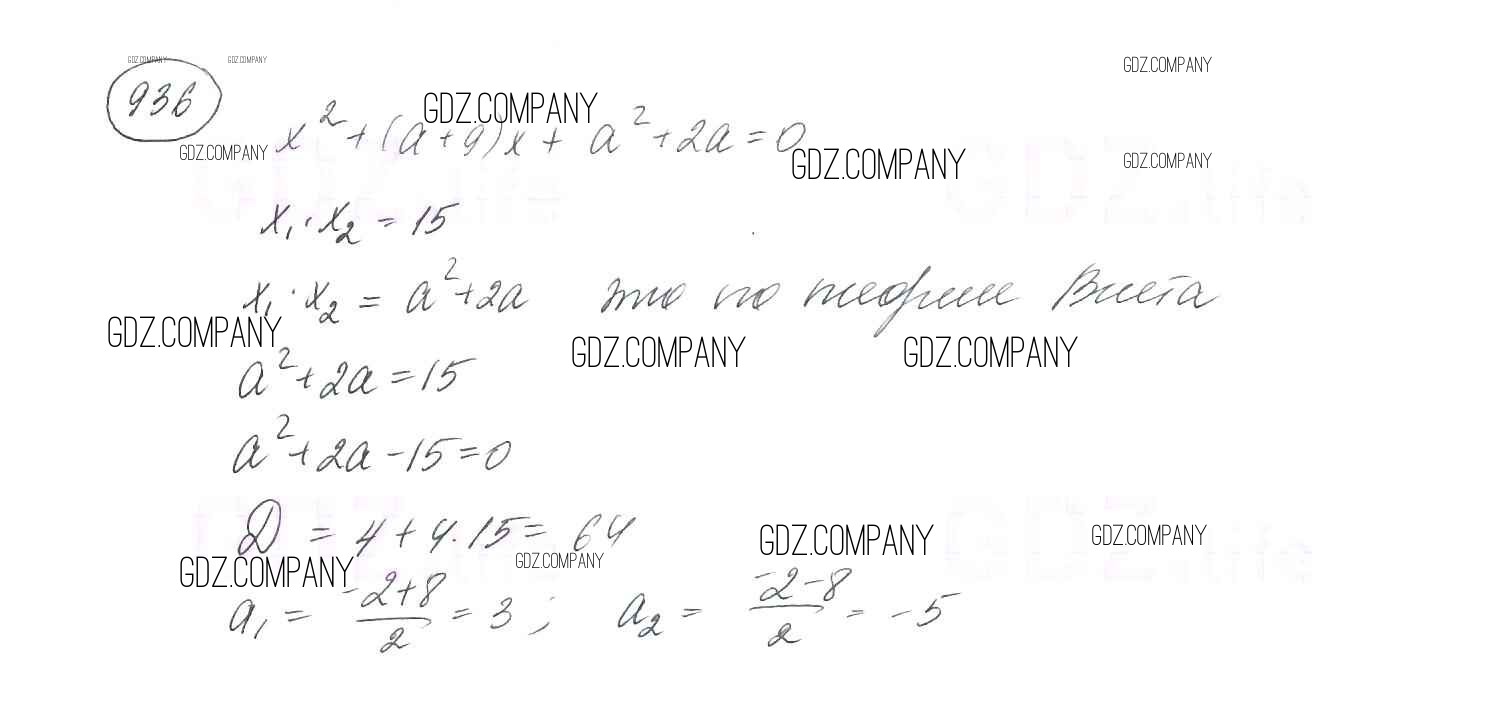 GDZ.COMPANY GDZ.COMPANY GDZ.COMPANY
936
x² + (a + 9)x + a² + 2a = 0
GDZ.COMPANY
GDZ.COMPANY GDZ.COMPANY GDZ.COMPANY
GDZ.life GDZ.life
x₁ · x₂ = 15
x₁ · x₂ = a² + 2a это по теореме Виета
GDZ.COMPANY GDZ.COMPANY GDZ.COMPANY
a² + 2a = 15
a² + 2a - 15 = 0
D = 4 + 4 · 15 = 64
GDZ.COMPANY GDZ.COMPANY
GDZ.life GDZ.life
GDZ.COMPANY GDZ.COMPANY
a₁ = (-2+8)/2 = 3 ; a₂ = (-2-8)/2 = -5